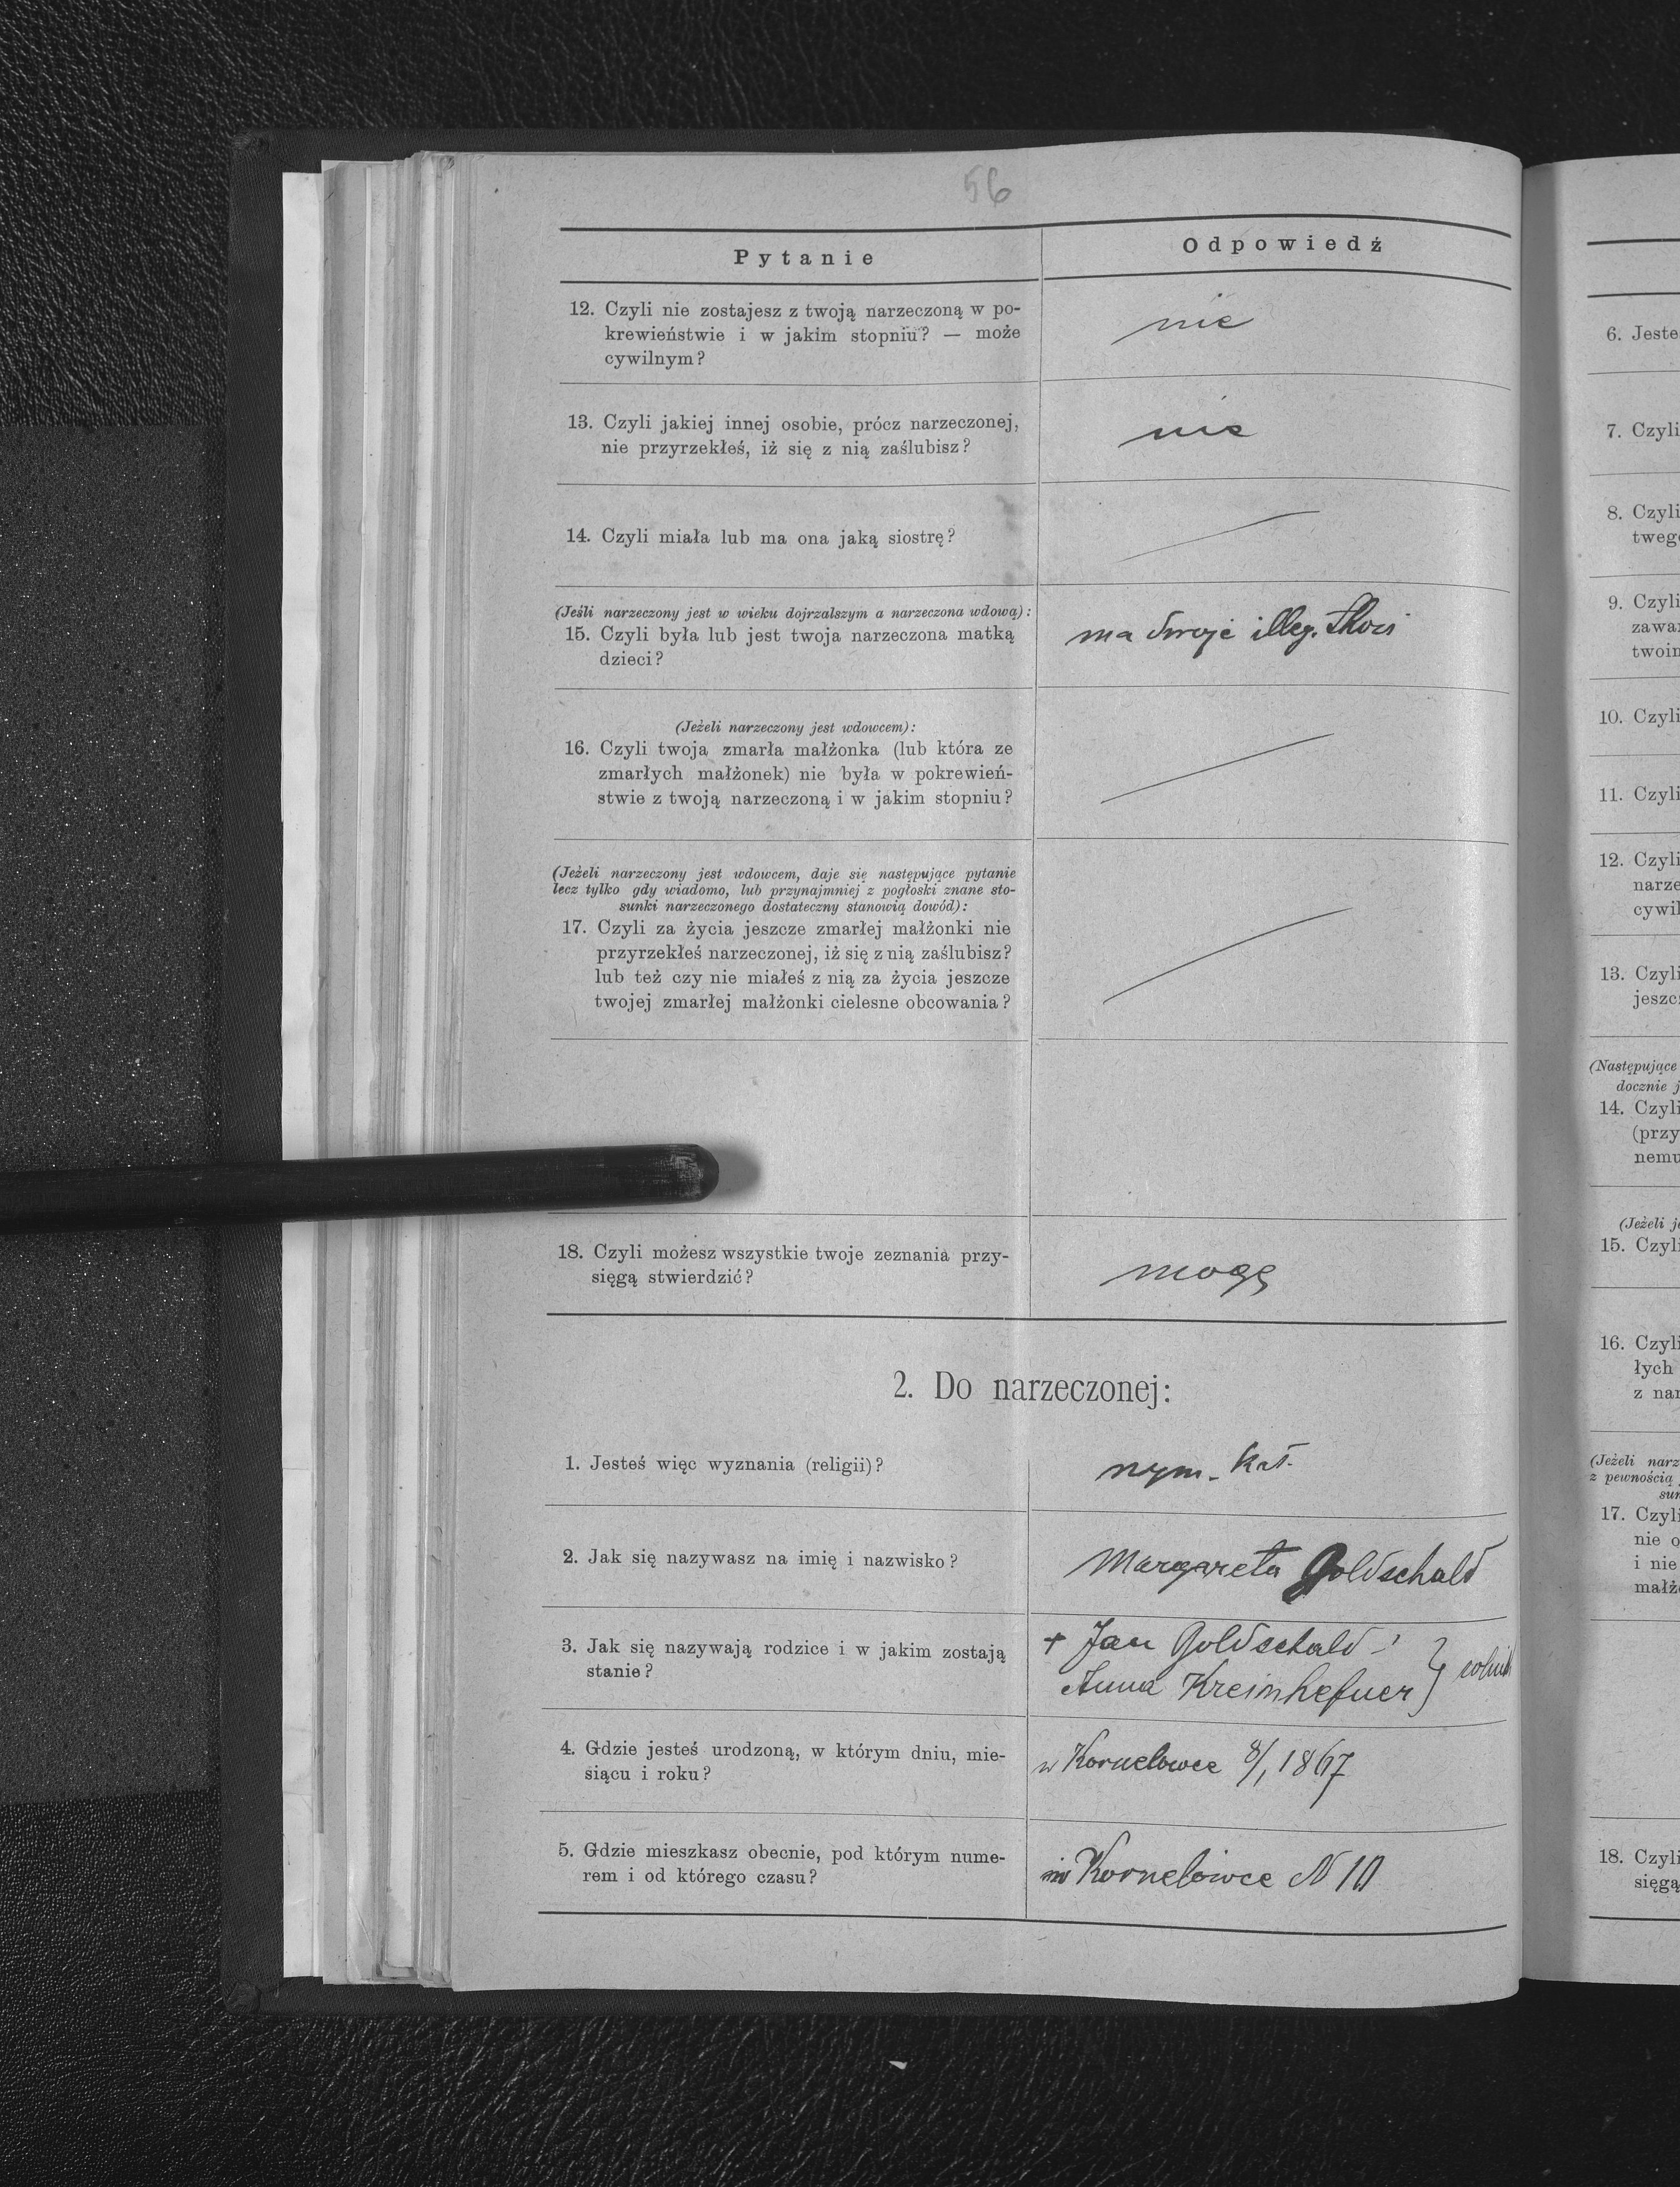 56
Pytanie
Odpowiedź
12. Czyli nie zostajesz z twoją narzeczoną w po-
krewieństwie i w jakim stopniu? — może
cywilnym?
nie
13. Czyli jakiej innej osobie, prócz narzeczonej,
nie przyrzekłeś, iż się z nią zaślubisz?
nie
14. Czyli miała lub ma ona jaką siostrę?
(Jeśli narzeczony jest w wieku dojrzalszym a narzeczona wdową):
15. Czyli była lub jest twoja narzeczona matką
dzieci?
ma dwoje illeg.
(Jeżeli narzeczony jest wdowcem):
16. Czyli twoja zmarła małżonka (lub która ze
zmarłych małżonek) nie była w pokrewień-
stwie z twoją narzeczoną i w jakim stopniu?
(Jeżeli narzeczony jest wdowcem, daje się następujące pytanie
lecz tylko gdy wiadomo, lub przynajmniej z pogłoski znane sto-
sunki narzeczonego dostateczny stanowią dowód):
17. Czyli za życia jeszcze zmarłej małżonki nie
przyrzekłeś narzeczonej, iż się z nią zaślubisz?
lub też czy nie miałeś z nią za życia jeszcze
twojej zmarłej małżonki cielesne obcowania?
18. Czyli możesz wszystkie twoje zeznania przy-
sięgą stwierdzić?
mogę
2. Do narzeczonej:
1. Jesteś więc wyznania (religii)?
rzym. kat.
2. Jak się nazywasz na imię i nazwisko?
Margareta Goldschald
3. Jak się nazywają rodzice i w jakim zostają
stanie?
+ Jan Goldschald
Anna Kreinhefner
4. Gdzie jesteś urodzoną, w którym dniu, mie-
siącu i roku?
w Kornelowce 8/1 1867
5. Gdzie mieszkasz obecnie, pod którym nume-
rem i od którego czasu?
w Kornelowce N 10
6. Jeste
7. Czyli
8. Czyli
twego
9. Czyli
zawar
twoim
10. Czyli
11. Czyli
12. Czyli
narze
cywil
13. Czyli
jeszcz
(Następujące
docznie j
14. Czyli
(przy
nemu
(Jeżeli je
15. Czyli
16. Czyli
łych
z nar
(Jeżeli narz
z pewnością
sun
17. Czyli
nie o
i nie
małżo
18. Czyli
sięgą